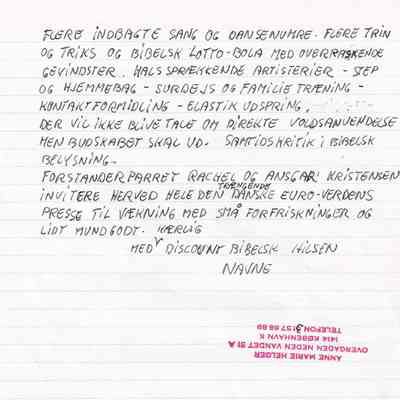 FLERE INDBAGTE SANG OG DANSENUMRE. FLERE TRIN
OG TRIKS OG BIBELSK LOTTO-BOLA MED OVERRASKENDE
GEVINDSTER. HALSBRÆKKENDE ARTISTERIER - STEP
OG HJEMMEBAG - SURDEJS OG FAMILIE TRÆNING -
KONTAKTFORMIDLING - ELASTIK UDSPRING.
DER VIL IKKE BLIVE TALE OM DIREKTE VOLDSANVENDELSE
MEN BUDSKABET SKAL UD. SAMTIDSKRITIK I BIBELSK
BELYSNING.
FORSTANDERPARRET RACHEL OG ANSGAR KRISTENSEN
TRÆNGENDE
INVITERE HERVED HELE DEN DANSKE EURO-VERDENS
PRESSE TIL VÆKNING MED SMÅ FORFRISKNINGER OG
LIDT MUNDGODT. KÆRLIG
MED DISCOUNT BIBELSK HILSEN
NAVNE
ANNE MARIE HELGER
OVERGADEN NEDEN VANDET 51 A
1414 KØBENHAVN K
TELEFON 31 57 68 89